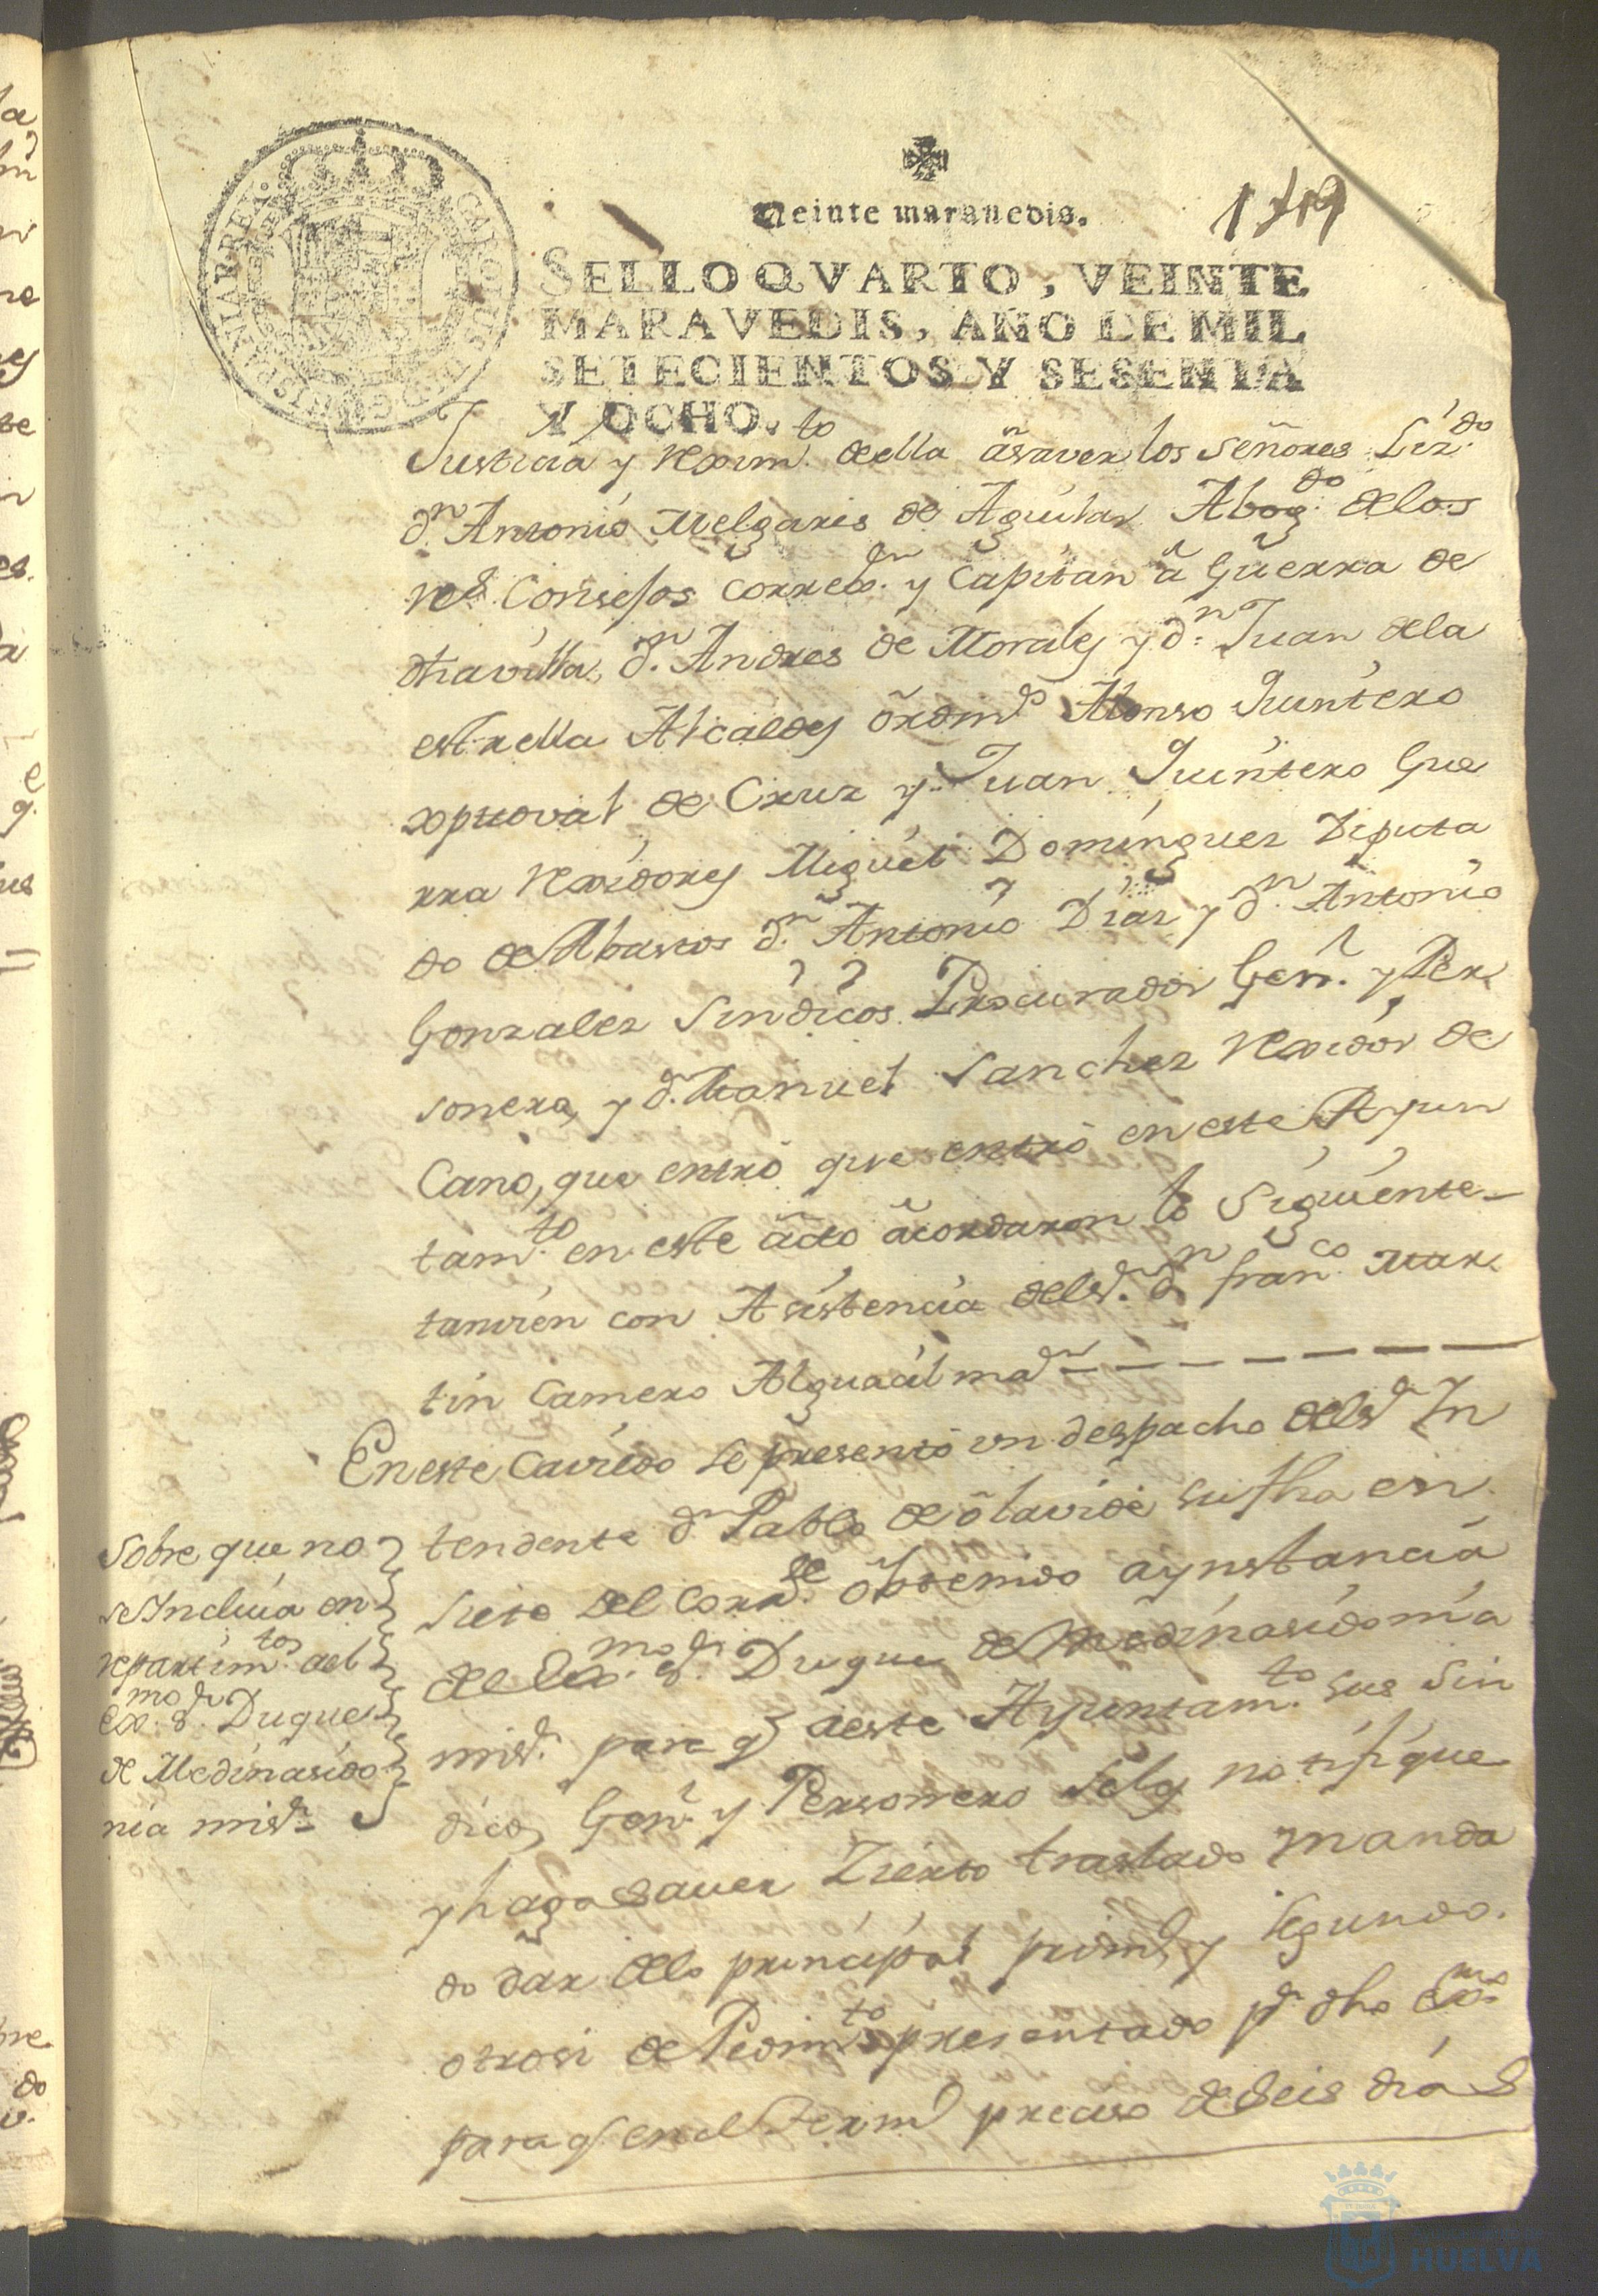 Veinte maravedis.
1719
SELLO QVARTO, VEINTE
MARAVEDIS, AÑO DE MIL
SETECIENTOS Y SESENTA
Y OCHO.
CAROLUS III D G HISPANIAR REX
Justicia y Rexim.to de ella asaver los Señores Liz.do
d.n Antonio Melgarejo de Aguilar Abog.do de los
R.s Consejos Correx.or y Capitan a Guerra de
dha villa, d.n Andres de Morales y d.n Juan de la
estrella Alcaldes ordin.s Alonso Quintero
de Cruz y Juan Quintero Gue
rra Rexidores Miguel Dominguez Diputa
do de Abastos d.n Antonio Diaz y d.n Antonio
Gonzalez Sindicos Procurador Gen.l y Per
sonero, y d.n Manuel Sanchez Rexidor de
Cano, que entró que entró en este Ayun
tam.to en este acto acordaron lo Siguiente
tanvien con Asistencia del s.r d.n fran.co Mar
tin Camero Alguacil ma.or
En este Cavildo se presentó un despacho del s.r In
tendente d.n Pablo de olavide su fha en
siete del corr.te obtenido a ynstancia
del Ex.mo S.r Duque de Medinasidonia
mi s.r para q.e a este Ayuntam.to sus Sin
dicos Gen.l y Personero se les notifique
y haga saver Zierto traslado manda
do dar de lo principal prim.o y segundo
otrosi de Pedim.to presentado p.r dho Ex.mo
para q.e en el Term.o preciso de Seis dias
Sobre que no
se Incluia en
repartim.tos al
ex.mo S.r Duque
de Medinasido
nia mi s.r
HUELVA